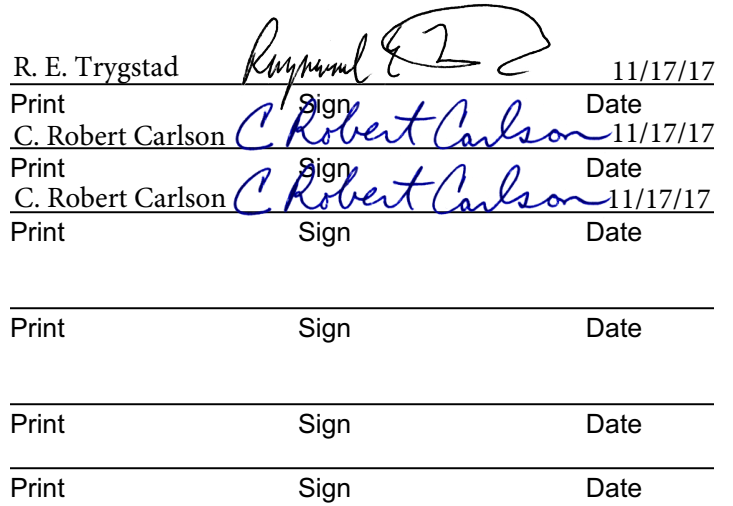 R. E. Trygstad Raymond E 11/17/17
Print Sign Date
C. Robert Carlson C Robert Carlson 11/17/17
Print Sign Date
C. Robert Carlson C Robert Carlson 11/17/17
Print Sign Date
Print Sign Date
Print Sign Date
Print Sign Date